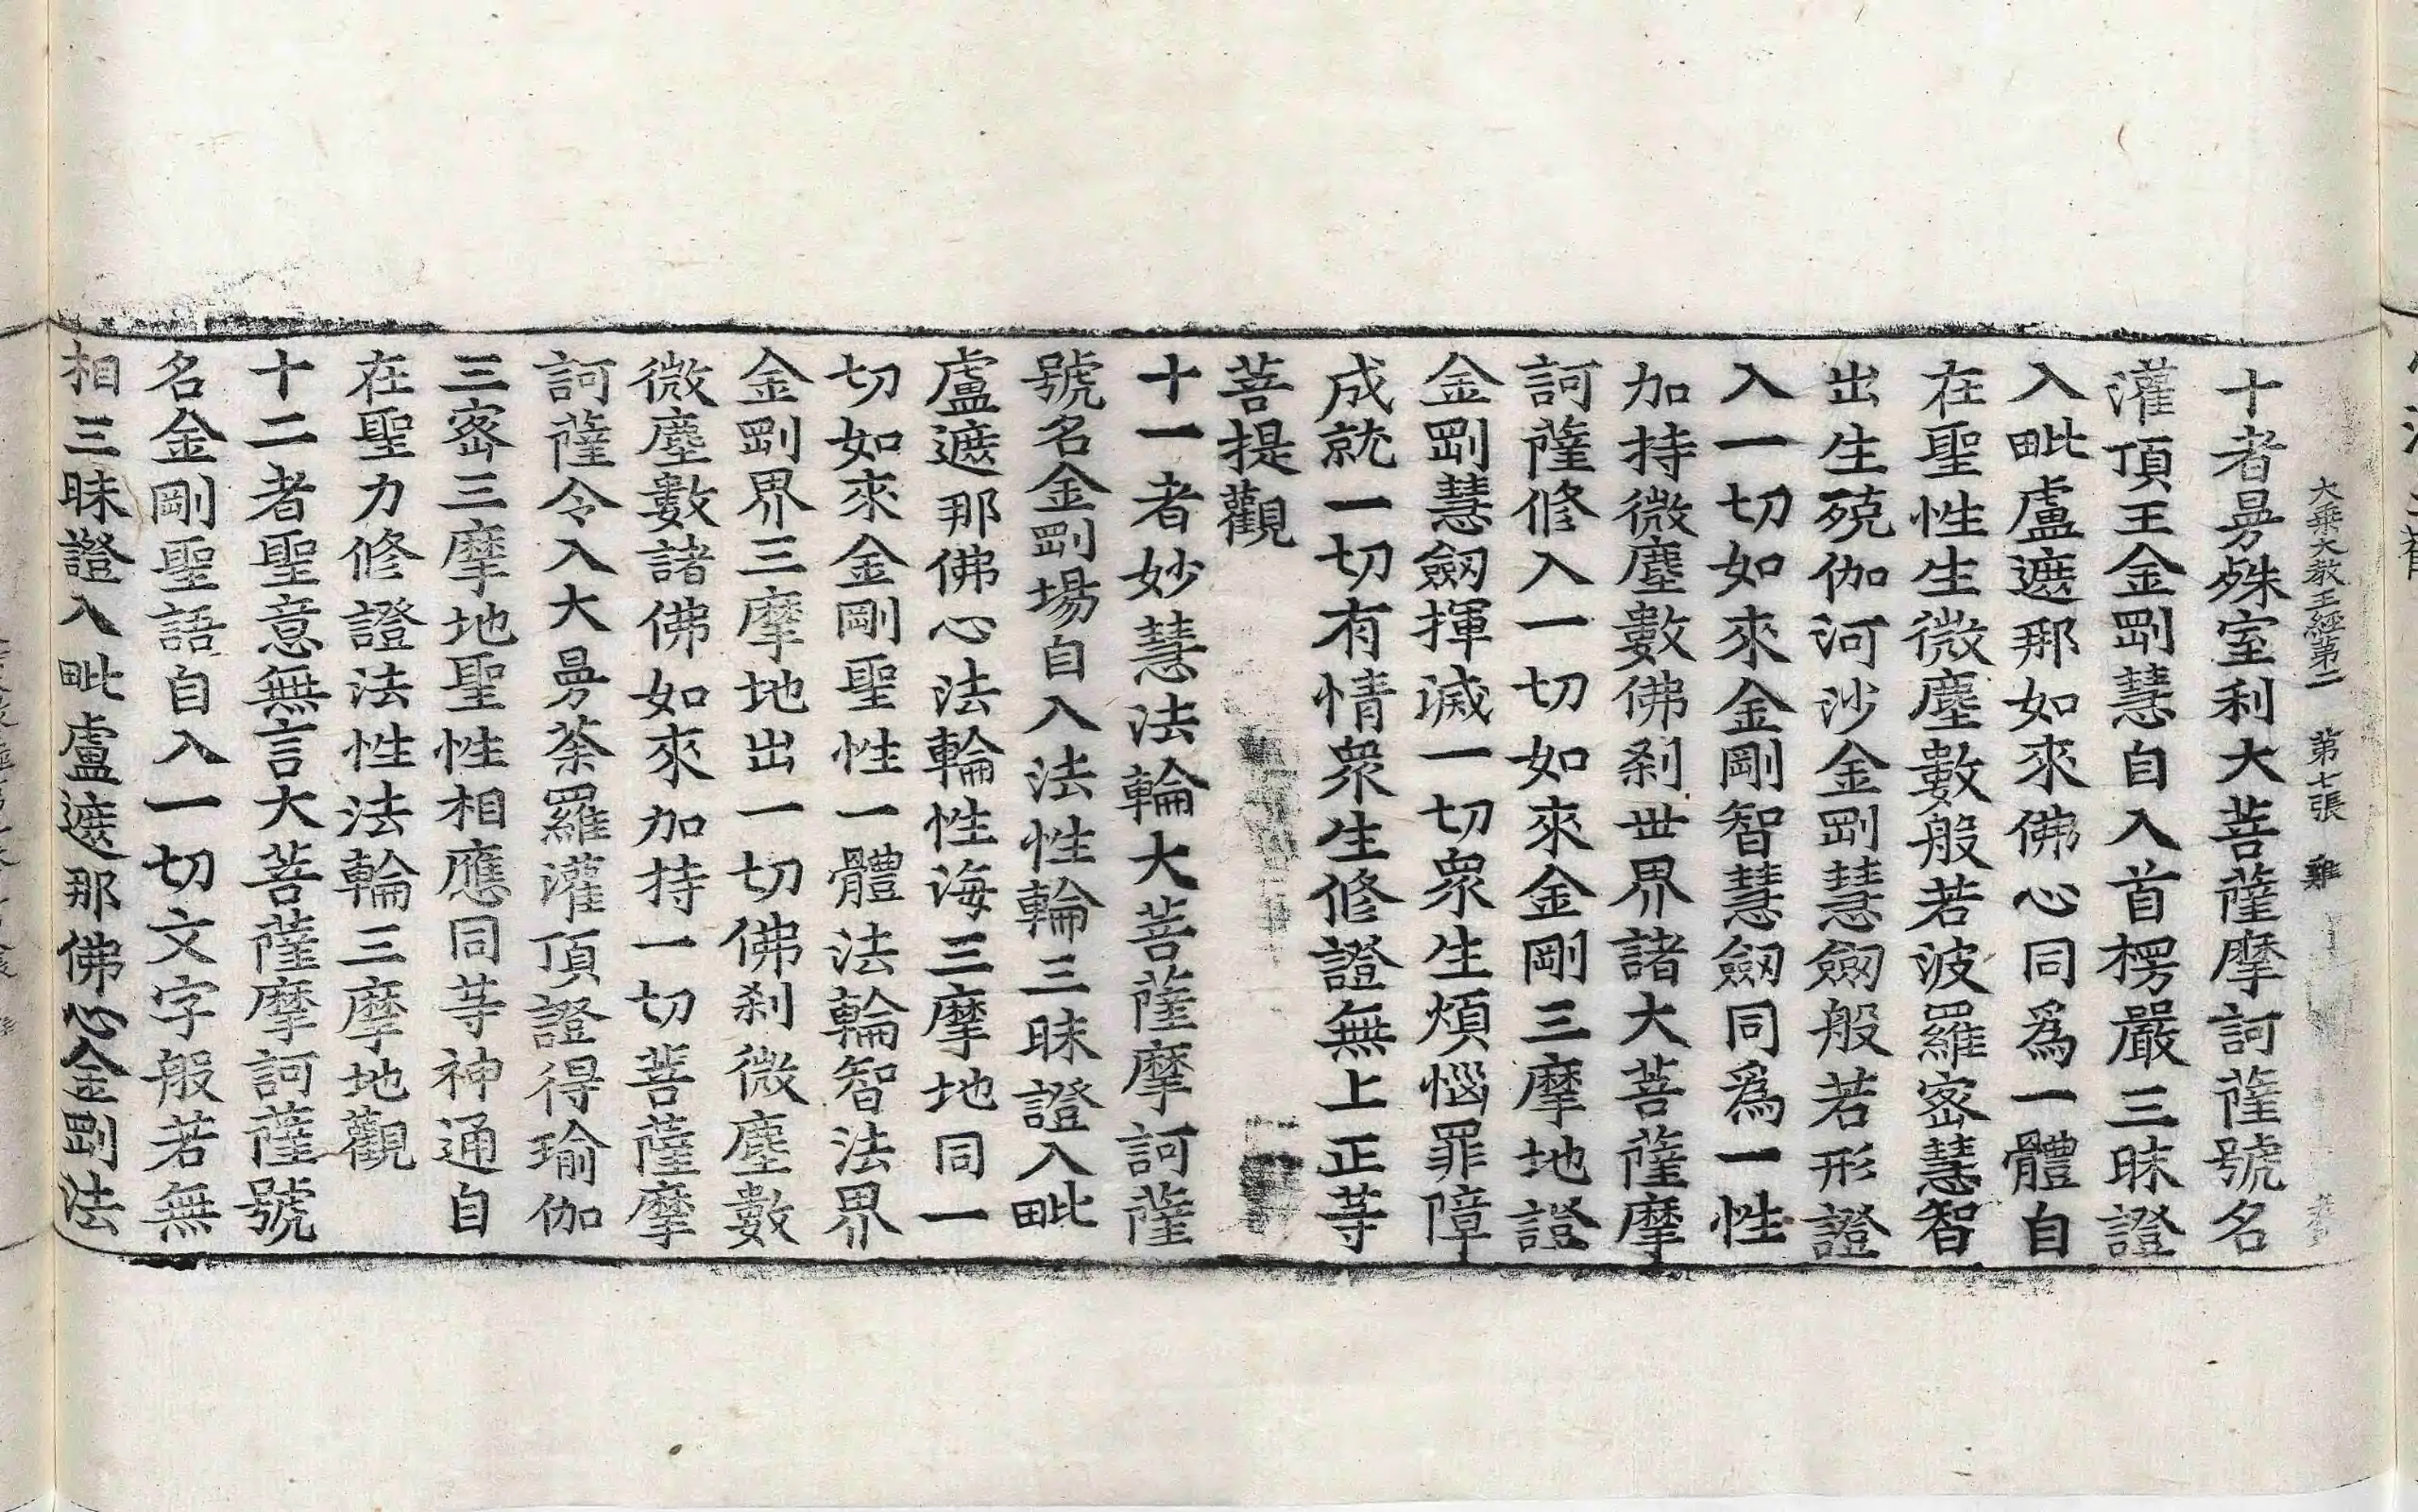 大乗大教王經第二 第七張 雞
十者曼殊室利大菩薩摩訶薩號名
灌頂王金剛慧自入首楞嚴三昧證
入毗盧遮那如來佛心同爲一體自
在聖性生微塵數般若波羅蜜慧智
出生殑伽河沙金剛慧劔般若形證
入一切如來金剛智慧劔同爲一性
加持微塵數佛剎世界諸大菩薩摩
訶薩修入一切如來金剛三摩地證
金剛慧劔揮滅一切衆生煩惱罪障
成就一切有情衆生修證無上正等
菩提觀
十一者妙慧法輪大菩薩摩訶薩
號名金剛場自入法性輪三昧證入毗
盧遮那佛心法輪性海三摩地同一
切如來金剛聖性一體法輪智法界
金剛界三摩地出一切佛剎微塵數
微塵數諸佛如來加持一切菩薩摩
訶薩令入大曼荼羅灌頂證得瑜伽
三密三摩地聖性相應同等神通自
在聖力修證法性法輪三摩地觀
十二者聖意無言大菩薩摩訶薩號
名金剛聖語自入一切文字般若無
相三昧證入毗盧遮那佛心金剛法